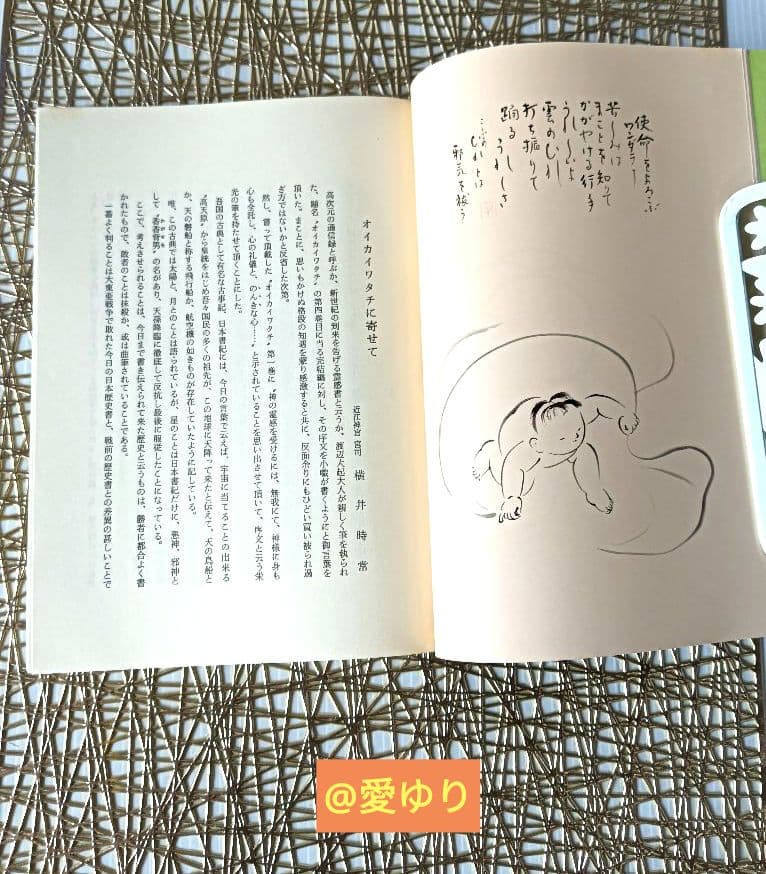 使命をよろこぶ
ワンダラー
苦しみは
まことを知りて
かがやける行事
うれしよ
雲のむれ
打ち振りて
踊る うれしさ
むれとは
邪気を祓う
オイカイワタチに寄せて
近江神宮 宮司 横井時常
高次元の通信録と呼ぶか、新世紀の到来を告げる霊感書と云うか、渡辺大起大人が親しく筆を執られ
た、題名〝オイカイワタチ〟の第四巻目に当る完結編に対し、その序文を小職が書くようにと御言葉を
頂いた。まことに、思いもかけぬ格段の知遇を蒙り感激すると共に、反面余りにもひどい買い被られ過
ぎ方ではないかと反省した次第。
然し、嘗って頂戴した〝オイカイワタチ〟第一巻に〝神の霊感を受けるには、無我にて、神様に身も
心も全託し、心の礼儀と、のんきな心……〟と示されていることを思い出させて頂いて、序文と云う栄
光の筆を持たせて頂くことにした。
吾国の古典として有名な古事記、日本書紀には、今日の言葉で云えば、宇宙に当てることの出来る
〝高天原〟から皇統をはじめ吾々国民の多くの祖先が、この地球に天降って来たと伝えて、天の鳥船と
か、天の磐船と称する飛行船か、航空機の如きものが存在していたように記している。
唯、この古典では太陽と、月とのことは語られているが、星のことは日本書紀だけに、悪神、邪神と
して〝香香背男〟の名があり、天孫降臨に徹底して反抗し最後に服従したことになっている。
ここで、考えさせられることは、今日まで書き伝えられて来た歴史と云うものは、勝者に都合よく書
かれたもので、敗者のことは抹殺か、或は曲筆されていることである。
一番よく判ることは大東亜戦争で敗れた今日の日本歴史書と、戦前の歴史書との差異の甚しいことで
@愛ゆり